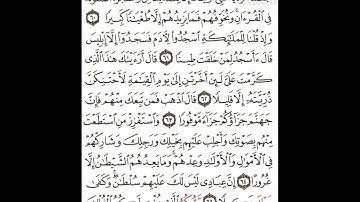 فِى ٱلْقُرْءَانِ وَنُخَوِّفُهُمْ فَمَا يَزِيدُهُمْ إِلَّا طُغْيَٰنًا كَبِيرًا ٦٠
وَإِذْ قُلْنَا لِلْمَلَٰٓئِكَةِ ٱسْجُدُوا۟ لِءَادَمَ فَسَجَدُوٓا۟ إِلَّآ إِبْلِيسَ
قَالَ ءَأَسْجُدُ لِمَنْ خَلَقْتَ طِينًا ٦١ قَالَ أَرَءَيْتَكَ هَٰذَا ٱلَّذِى
كَرَّمْتَ عَلَىَّ لَئِنْ أَخَّرْتَنِ إِلَىٰ يَوْمِ ٱلْقِيَٰمَةِ لَأَحْتَنِكَنَّ
ذُرِّيَّتَهُۥٓ إِلَّا قَلِيلًا ٦٢ قَالَ ٱذْهَبْ فَمَن تَبِعَكَ مِنْهُمْ فَإِنَّ
جَهَنَّمَ جَزَآؤُكُمْ جَزَآءً مَّوْفُورًا ٦٣ وَٱسْتَفْزِزْ مَنِ ٱسْتَطَعْتَ
مِنْهُم بِصَوْتِكَ وَأَجْلِبْ عَلَيْهِم بِخَيْلِكَ وَرَجِلِكَ وَشَارِكْهُمْ
فِى ٱلْأَمْوَٰلِ وَٱلْأَوْلَٰدِ وَعِدْهُمْ وَمَا يَعِدُهُمُ ٱلشَّيْطَٰنُ إِلَّا
غُرُورًا ٦٤ إِنَّ عِبَادِى لَيْسَ لَكَ عَلَيْهِمْ سُلْطَٰنٌ وَكَفَىٰ